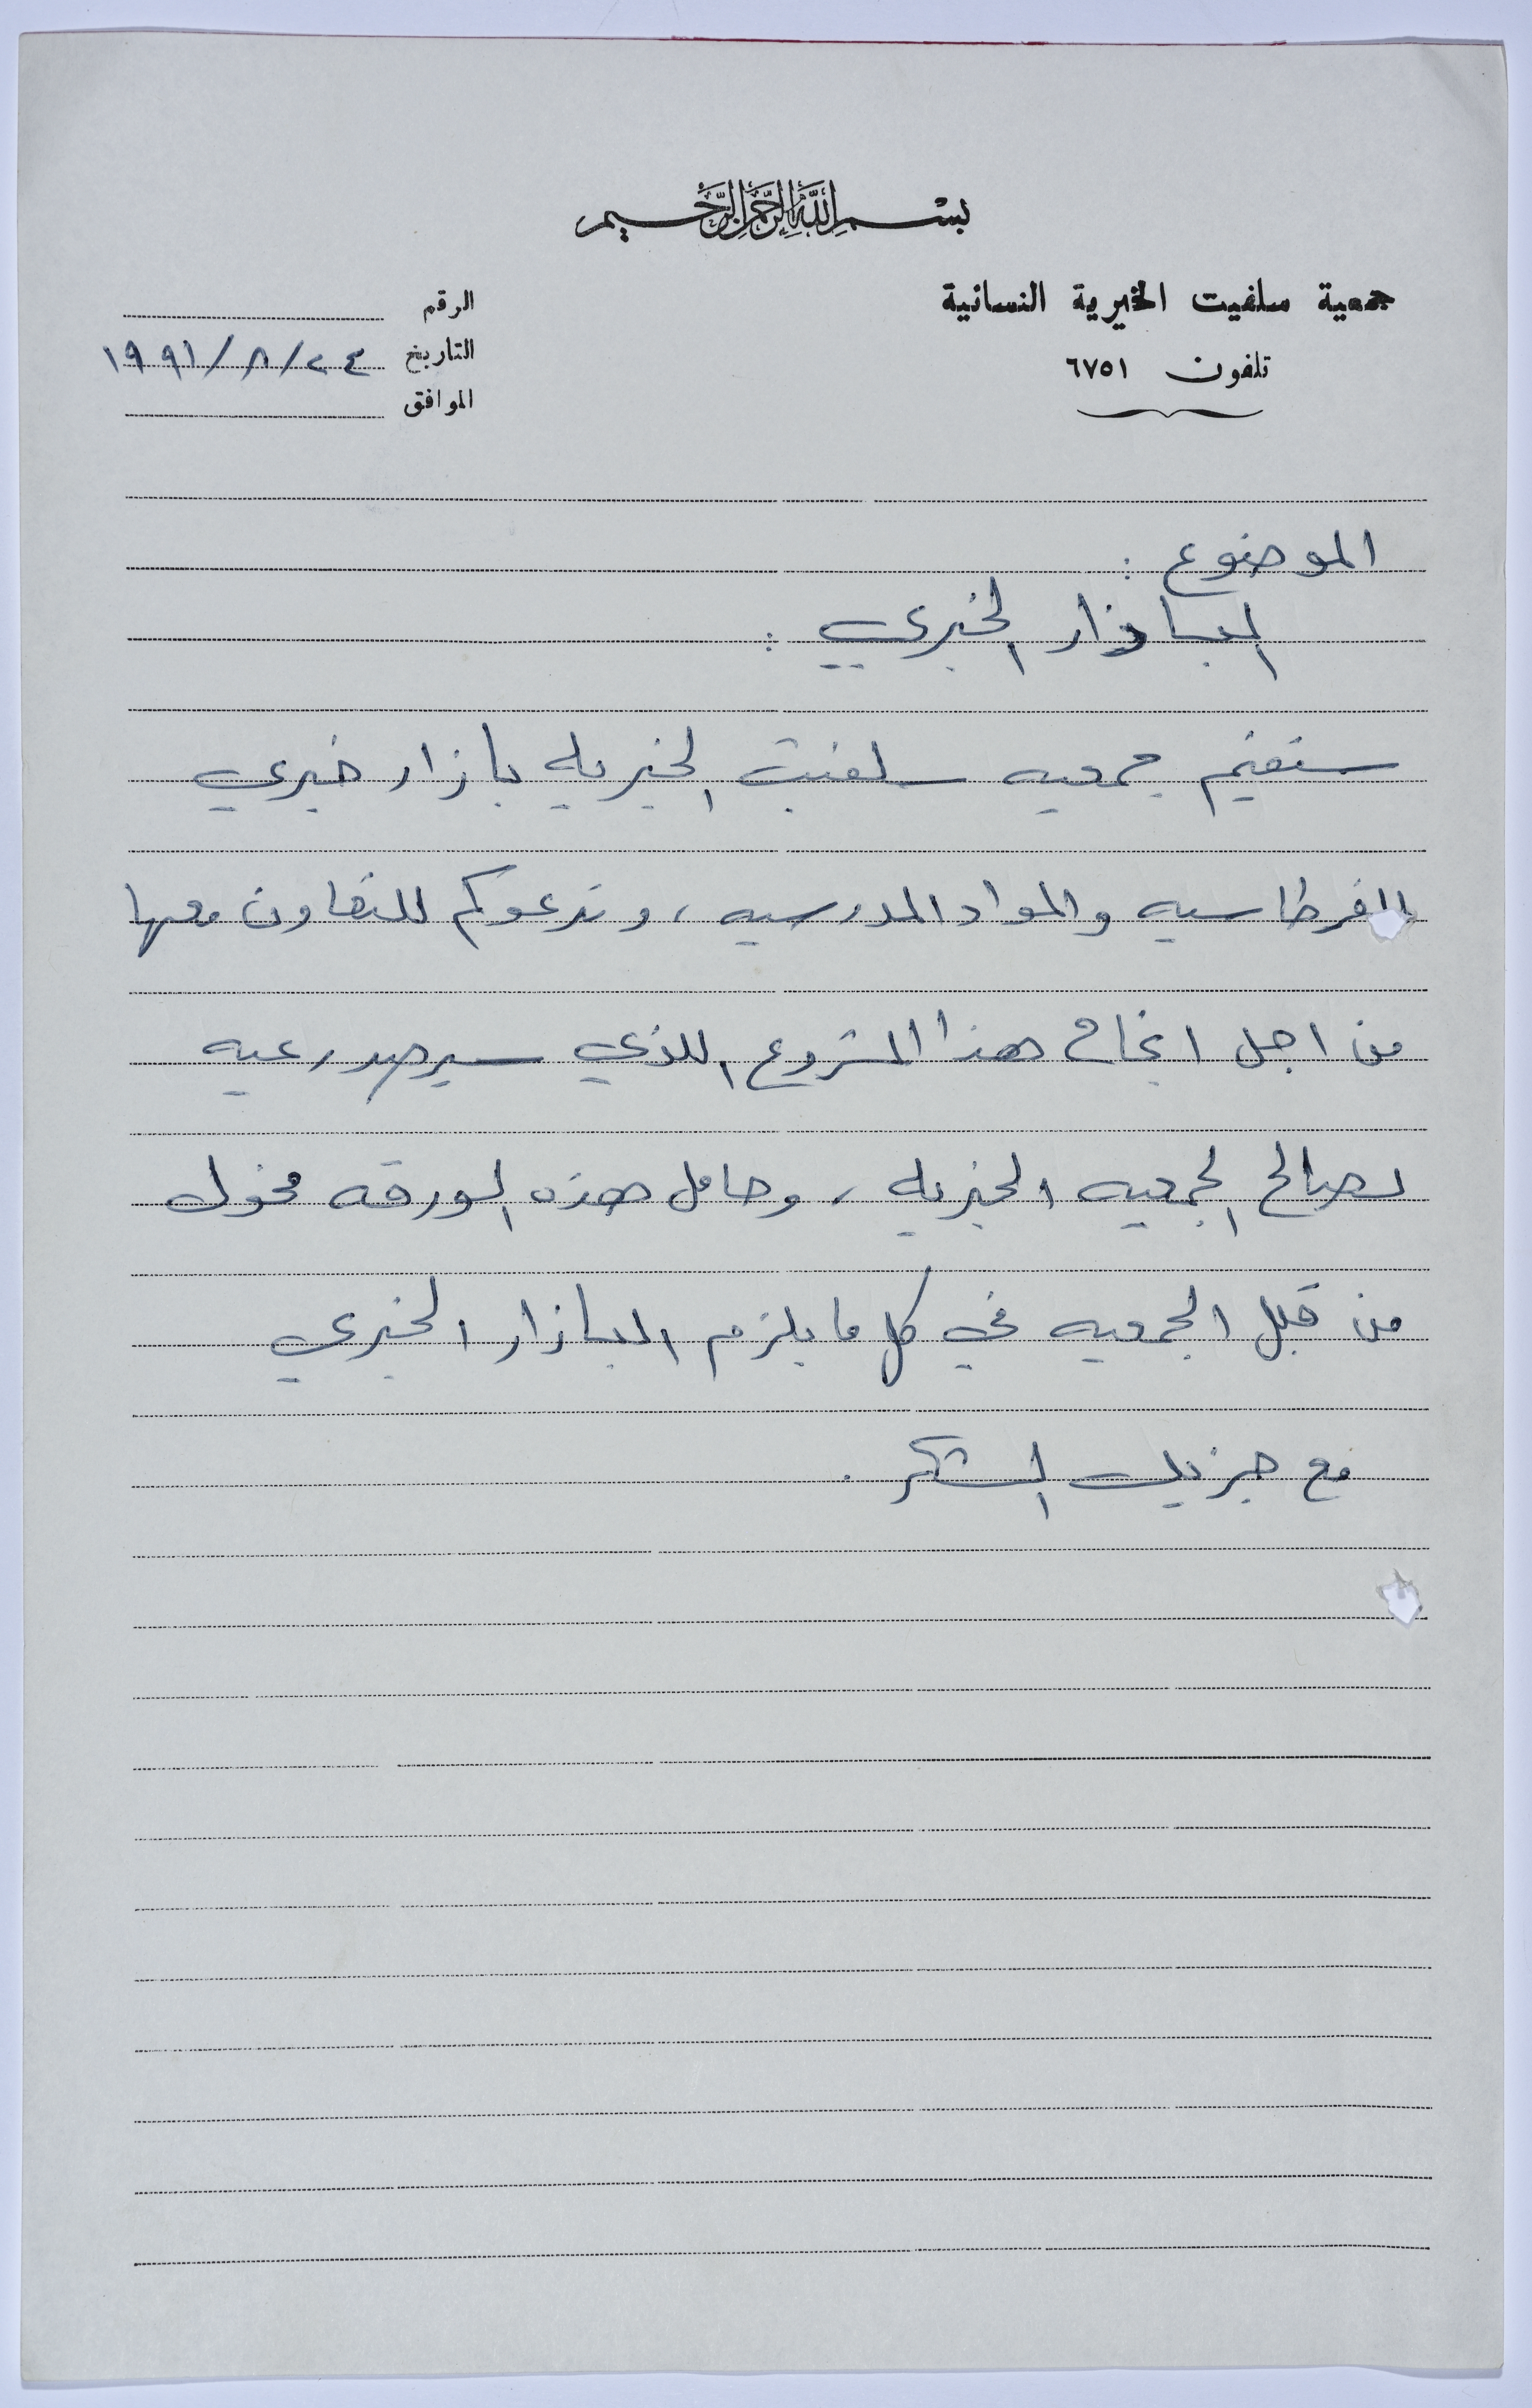 بسم الله الرحمن الرحيم
جمعية سلفيت الخيرية النسائية
تلفون ٦٧٥١
الرقم
التاريخ ٢٤/٨/١٩٩١
الموافق
الموضوع :
البازار الخيري :
ستقيم جمعيه سلفيت الخيريه بازار خيري
للقرطاسيه والمواد المدرسيه، وندعوكم للتعاون معها
من اجل انجاح هذا المشروع اللذي سيرصد رعيه
لصالح الجمعيه الخيريه، وحامل هذه الورقه مخول
من قبل الجمعيه في كل ما يلزم البازار الخيري
مع جزيل الشكر.